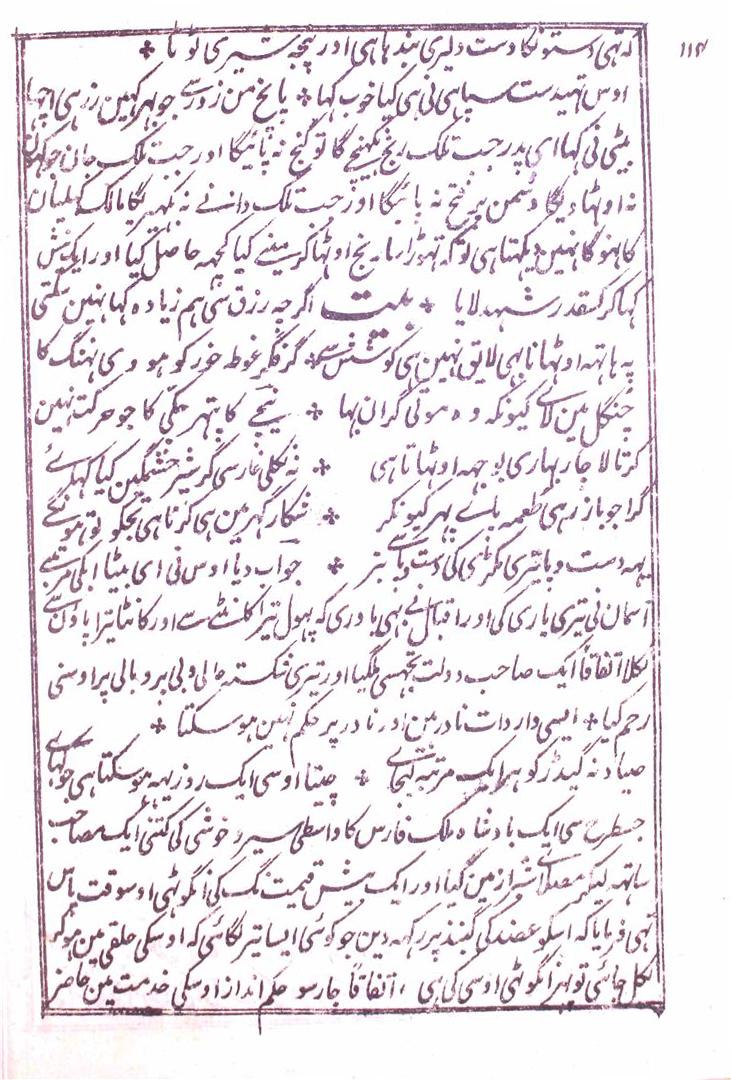 ۱۱۴
کہ تہی دستونکا دست دلیری بندہا ہی اور پنجہ شیری ٹوٹا ٭
اوس تہیدست سپاہی نی ہی کیا خوب کہا ٭ پانچ من زور سے جو بہر کہین زر ہی اچہا
بیٹی نی کہا ای پدر جب تلک رنج نکہینچے گا تو گنج نہ پائیگا اور جب تلک جان جوکہون
نہ اوٹہا دیگا دشمن پر فتح نہ پائیگا اور جب تلک دانے نہ بکہیریگا مالک کہلیان
کا ہنو گا نہین دیکہتا ہی تو کہ تہوڑا سا رنج اوٹہا کر مینے کیا کچہہ حاصل کیا اور ایک نیش
کہا کر کسقدر شہد لایا ٭ بیت اگرچہ رزق سی ہم زیادہ کہا نہین سکتی
پہ ہاتہہ اوٹہانا بہی لایق نہین ہی کوشش سے ٭ گر فکر غوطہ خور کو ہووی نہنگ کا
چنگل مین لاے کیونکہ وہ موتی گران بہا ٭ نیچے کا پتہر چکی کا جو حرکت نہین
کرتا لاچار بہاری بوجہہ اوٹہاتا ہی ٭ نہ نکلی غار سی گر شیر خشمگین کیا کہاے
گرا جو باز رہی طعمہ پاے پہر کیونکر ٭ شکار گہر مین ہی کرتا ہی تجکو تو ہونگے
یہہ دست و پا تیری مکڑی کی دست و پاسے بتر ٭ جواب دیا اوس نی ای بیٹا ابکی مرتبے
آسمان نی تیری یاری کی اور اقبال نے بہی یاوری کہ پہول تیرا کانٹے سے اور کانٹا تیرا پاون سے
نکلا اتفاقاً ایک صاحب دولت تجہسی ملگیا اور تیری شکستہ حالی و بی پر و بالی پر اوسنی
رحم کیا ٭ ایسی واردات نادر مین اور نادر پر حکم نہین ہو سکتا ٭
صیاد نہ گیدڑ کو ہر ایک مرتبہ لیجاے ٭ چیتا اوسی ایک روز یہہ ہو سکتا ہی جو کہاے
جسطرح سی ایک بادشاہ ملک فارس کا واسطی سیر و خوشی کی کتنی ایک مصاحب
ساتہہ لیکر مصلاے شیراز مین گیا اور ایک بیش قیمت نگ کی انگوٹہی اوسوقت پاس
تہی فرمایا کہ اسکو عضد کی گنبذ پر رکہہ دین جو کوئی ایسا تیر لگاے کہ اوسکی حلقی مین ہو کر
نکل جائی تو پہر انگوٹہی اوسی کی ہی ، اتفاقاً چار سو حکم انداز اوسکی خدمت مین حاضر